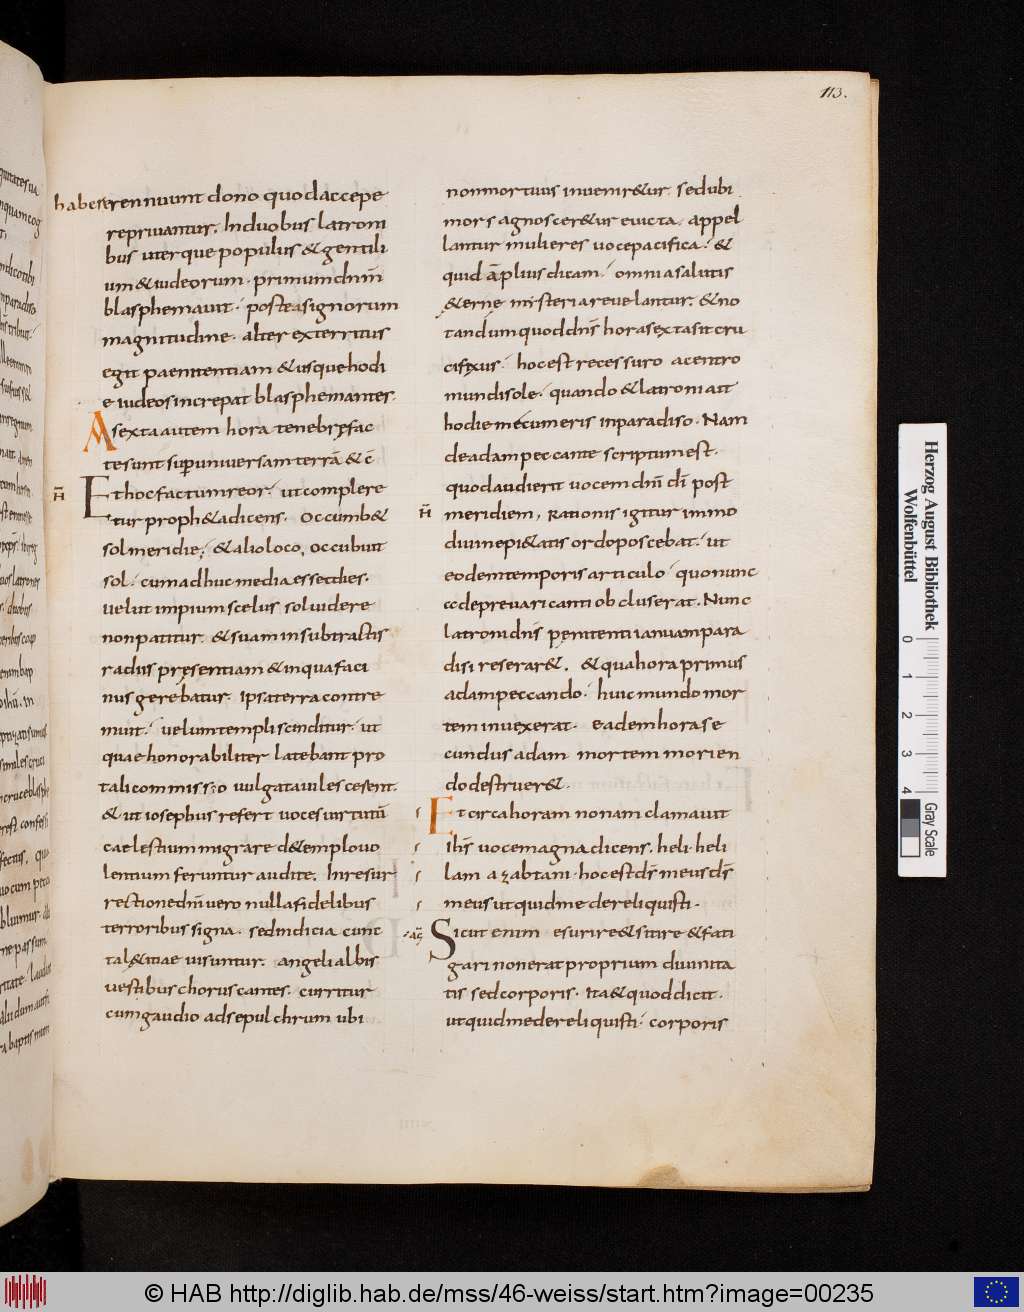 113.
habere rennuunt dono quod accepe
reprivantur. In duobus latroni
bus uterque populus & gentili
um & iudeorum. primum dnm̄
blasphemavit. postea signorum
magnitudine. alter exterritus
egit paenitentiam & usque hodi
e iudeos increpat blasphemantes.
A sexta autem hora tenebrę fac
te sunt sup universam terrā & c̄
Et hoc factum reor. ut complere
tur proph&a dicens. Occumb&
sol meridie. & alio loco, occubuit
sol. cum adhuc media esset dies.
velut impium scelus sol videre
non patitur. & suam in subtractis
radiis pręsentiam & in qua faci
nus gerebatur. ipsa terra contre
muit. velum templi scinditur. ut
quae honorabiliter latebant pro
tali commisso vulgata vilescesent.
& ut iosephus refert voces virtutū
caelestium migrare d&emplo vo
lentium feruntur audite. In resur
rectione dn̄i vero nulla fidelibus
terroribus signa. sed indicia cunc
ta l&itiae visuntur. angeli albis
vestibus chorus cantes. curritur
cum gaudio ad sepulchrum ubi
non mortuus invenir&ur sed ubi
mors agnoscer&ur evicta. appel
lantur mulieres voce pacifica. &
quid āplius dicam. omnia salutis
&ernę misteria revelantur. & no
tandum quod dn̄s hora sexta sit cru
cifixus. hoc est recessuro a centro
mundi sole. quando & latroni ait
hodie mecum eris in paradiso. Nam
de adam peccante scriptum est.
quod audierit vocem dn̄i dī post
meridiem, rationis igitur immo
divine pi&atis ordo poscebat. ut
eodem temporis articulo quo nunc
ade prevaricanti obcluserat. Nunc
latroni dn̄s pęnitenti ianuam para
disi reserar&. & qua hora primus
adam peccando. huic mundo mor
tem invexerat. eadem hora se
cundus adam mortem morien
do destruer&.
Et circa horam nonam clamavit
ih̄s voce magna dicens. heli. heli
lam azabtani. hoc est ds̄ meus ds̄
meus ut quid me dereliquisti.
Sicut enim esurire & sitire & fati
gari non erat proprium divinita
tis sed corporis. Ita & quod dicit.
ut quid me dereliquisti. corporis
Herzog August Bibliothek
Wolfenbüttel
0 1 2 3 4
Gray Scale
© HAB http://diglib.hab.de/mss/46-weiss/start.htm?image=00235